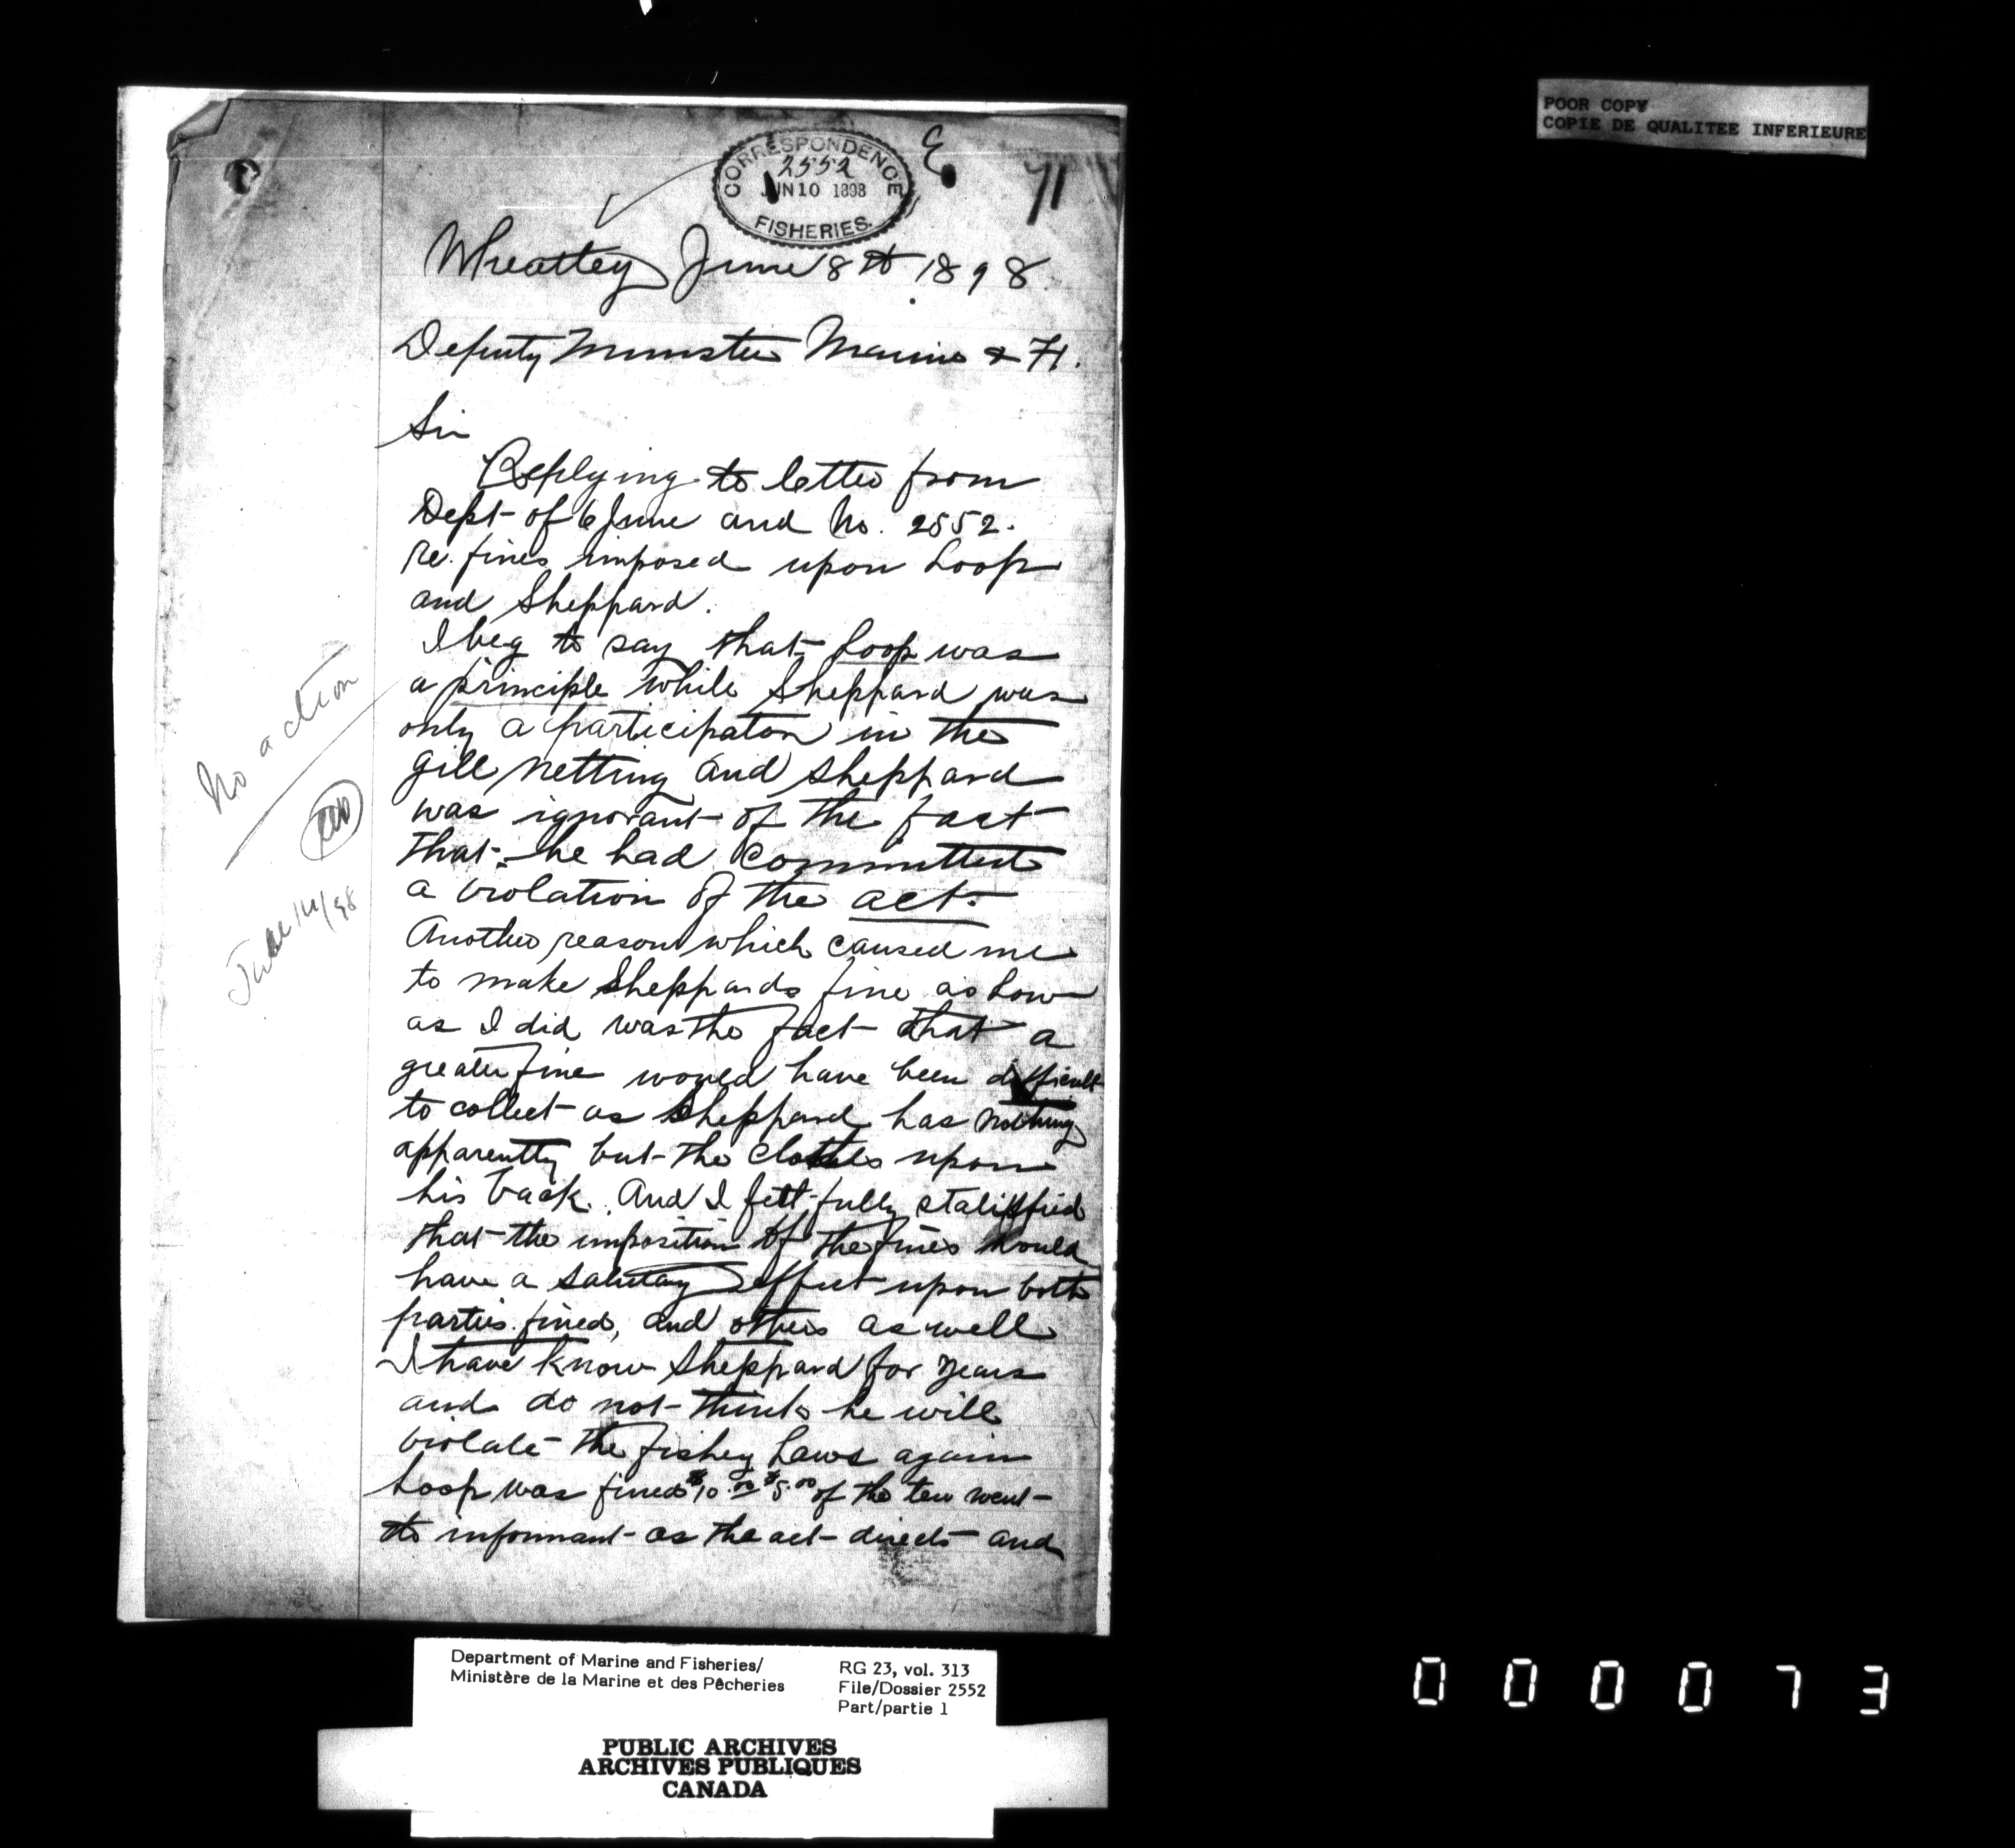 POOR COPY
COPIE DE QUALITEE INFERIEURE
CORRESPONDENCE
2552
JUN 10 1898
FISHERIES.
71
Wheatley June 8th 1898.
Deputy Minister Marine & F.
Sir
Replying to letter from
Dept of 6 June and No. 2552.
re. fines imposed upon Loop
and Sheppard.
I beg to say that Loop was
a principle while Sheppard was
only a participator in the
gill netting and Sheppard
was ignorant of the fact
that he had committed
a violation of the act.
Another reason which caused me
to make Sheppards fine as low
as I did was the fact that a
greater fine would have been difficult
to collect as Sheppard has nothing
apparently but the clothes upon
his back. And I felt fully
that the imposition of the fines would
have a salutary effect upon both
parties fined, and others as well
I have know Sheppard for years
and do not think he will
violate the fishey Laws again
Loop was fined $10.00 $5.00 of the ten went
to informant as the act directs and
No action
June 14/98
Department of Marine and Fisheries/
Ministère de la Marine et des Pêcheries
RG 23, vol. 313
File/Dossier 2552
Part/partie 1
PUBLIC ARCHIVES
ARCHIVES PUBLIQUES
CANADA
000073